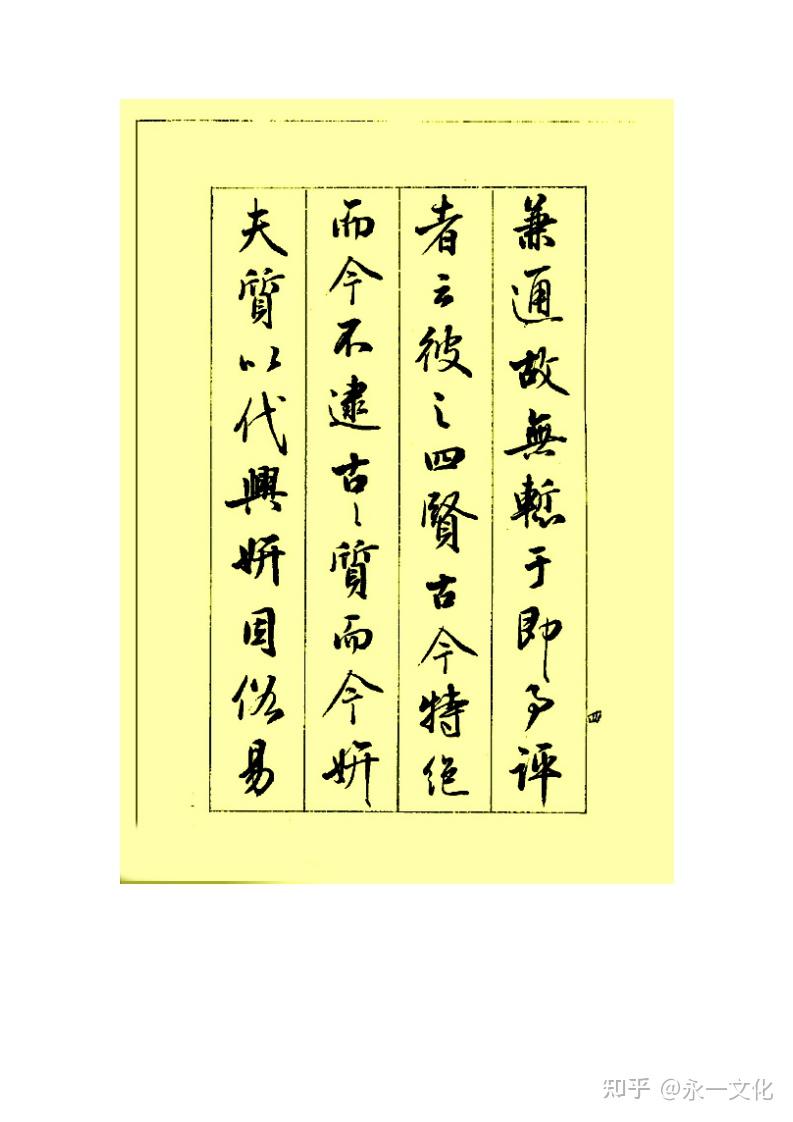 兼通故無慙于即事評
者云彼之四賢古今特絕
而今不逮古〻質而今妍
夫質以代興妍因俗易
四
知乎 @永一文化